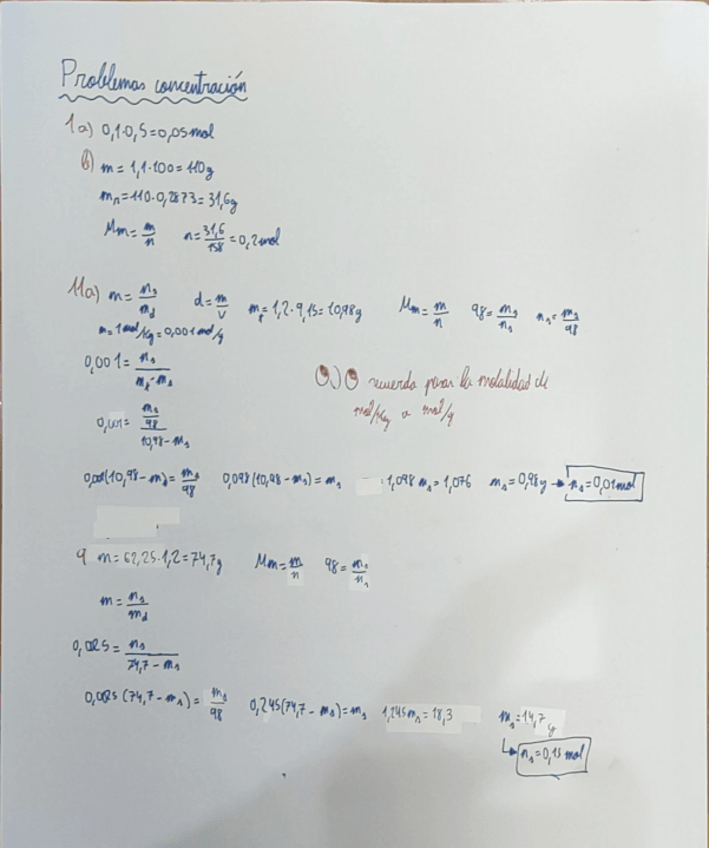 Problemas concentración
1a) 0,1·0,5=0,05mol
b) m = 1,1·100 = 110g
mₙ=110·0,2873=31,6g
Mm= m/n n= 31,6/158 = 0,2mol
11a) m= nₛ/m_d d= m/v mₜ= 1,2·9,15= 10,98g Mm= m/n 98= mₛ/nₛ nₛ= mₛ/98
m=1mol/Kg=0,001mol/g
0,001= nₛ/(mₜ-mₛ)
recuerda pasar la molalidad de
mol/Kg a mol/g
0,001= (mₛ/98)/(10,98-mₛ)
0,001(10,98-mₛ)= mₛ/98 0,098(10,98-mₛ)=mₛ 1,098mₛ=1,076 mₛ=0,98g → nₛ=0,01mol
9 m=62,25·1,2=74,7g Mm= m/n 98= mₛ/nₛ
m= nₛ/m_d
0,0025= nₛ/(74,7-mₛ)
0,0025(74,7-mₛ)= mₛ/98 0,245(74,7-mₛ)=mₛ 1,245mₛ=18,3 mₛ=14,7g
↳ nₛ=0,15mol